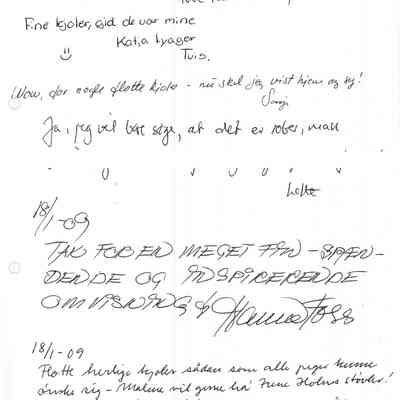 Fine kjoler, gid de var mine
Katja
Tvis.
Wow, for nogle flotte kjole - nu skal jeg vist hjem og sy!
Ja, jeg vil bare sige, at det er rober, man
Lotte
18/1-09
TAK FOR EN MEGET FIN - SPÆN-
DENDE OG INSPIRERENDE
OMVISNING
18/1-09
Flotte herlige kjoler sådan som alle piger kunne
ønske sig - Malene vil gerne ha' Irene Holms støvler!